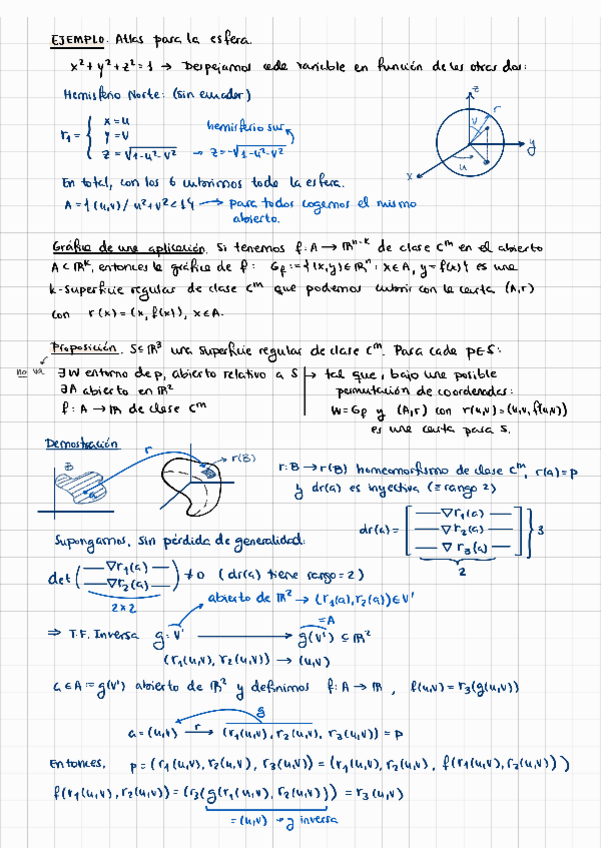 EJEMPLO. Atlas para la esfera.
x² + y² + z² = 1 → Despejamos cada variable en función de las otras dos:
Hemisferio Norte: (sin ecuador)
r₁ = { x = u
y = v
z = √(1-u²-v²) → z = -√(1-u²-v²)
hemisferio sur
z
r
v
y
u
x
En total, con los 6 cubrimos toda la esfera.
A = {(u,v) / u²+v² < 1} → para todos cogemos el mismo
abierto.
Gráfica de una aplicación. Si tenemos f: A → ℝⁿ⁻ᵏ de clase Cᵐ en el abierto
A ⊂ ℝᵏ, entonces la gráfica de f: G_f := {(x,y) ∈ ℝⁿ : x ∈ A, y = f(x)} es una
k-superficie regular de clase Cᵐ que podemos cubrir con la carta (A,r)
con r(x) = (x, f(x)), x ∈ A.
Proposición. S ⊆ ℝ³ una superficie regular de clase Cᵐ. Para cada p ∈ S:
no va
∃ W entorno de p, abierto relativo a S → tal que, bajo una posible
∃ A abierto en ℝ² permutación de coordenadas:
f: A → ℝ de clase Cᵐ W = G_f y (A,r) con r(u,v) = (u,v,f(u,v))
es una carta para S.
Demostración
r
B
a
r(B)
r: B → r(B) homeomorfismo de clase Cᵐ, r(a) = p
y dr(a) es inyectiva (≡ rango 2)
dr(a) = [ — ∇r₁(a) —
— ∇r₂(a) —
— ∇r₃(a) — ] } 3
2
Supongamos, sin pérdida de generalidad:
det ( — ∇r₁(a) —
— ∇r₂(a) — ) ≠ 0 (dr(a) tiene rango = 2)
2x2
abierto de ℝ² → (r₁(a), r₂(a)) ∈ V'
= A
⇒ T.F. Inversa g: V' → g(V') ⊆ ℝ²
(r₁(u,v), r₂(u,v)) → (u,v)
a ∈ A := g(V') abierto de ℝ² y definimos f: A → ℝ, f(u,v) = r₃(g(u,v))
g
a = (u,v) →r (r₁(u,v), r₂(u,v), r₃(u,v)) = p
Entonces, p = (r₁(u,v), r₂(u,v), r₃(u,v)) = (r₁(u,v), r₂(u,v), f(r₁(u,v), r₂(u,v)))
f(r₁(u,v), r₂(u,v)) = (r₃(g(r₁(u,v), r₂(u,v))) = r₃(u,v)
= (u,v) → g inversa